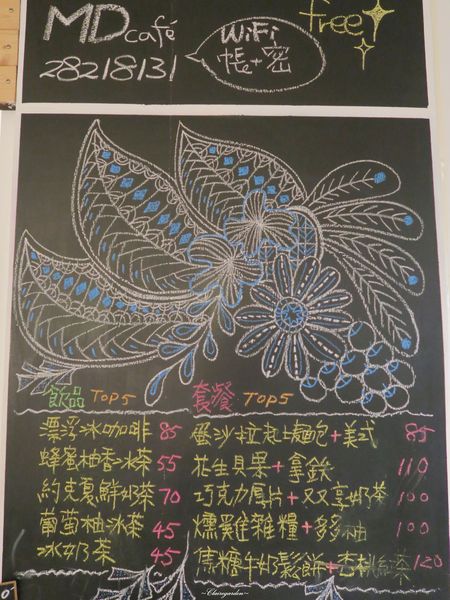 MD café
28218131
WiFi
帳+密
free
飲品 TOP5
漂浮冰咖啡 85
蜂蜜柚香冰茶 55
約克夏鮮奶茶 70
葡萄柚冰茶 45
冰奶茶 45
套餐 TOP5
蛋沙拉起士麵包+美式 85
花生貝果+拿鉄 110
巧克力厚片+双享奶茶 100
燻雞雜糧+多多柚 100
焦糖牛奶鬆餅+杏桃紅茶 120
~Clairegarden~